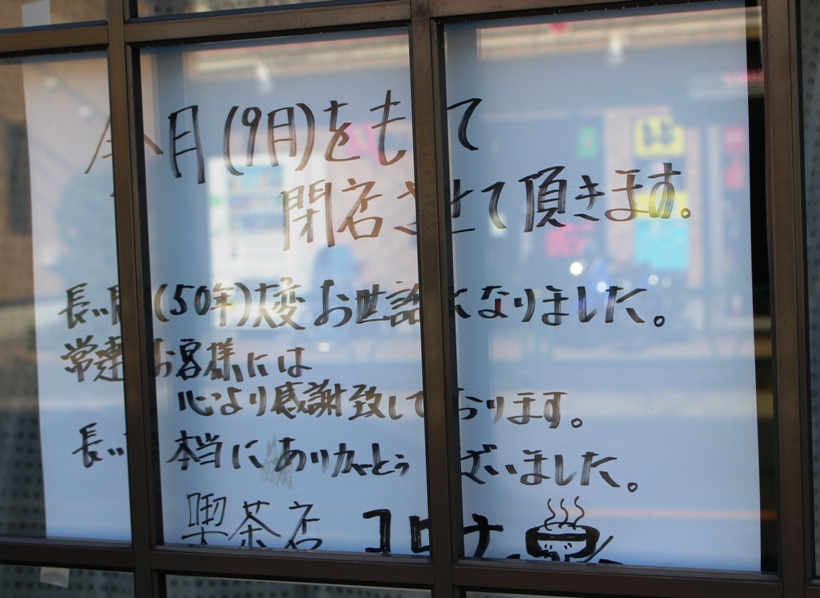 今月(9月)をもって
閉店させて頂きます。
長い間(50年)大変お世話になりました。
常連のお客様には
心より感謝致しております。
長い 本当にありがとうございました。
喫茶店 コロナ